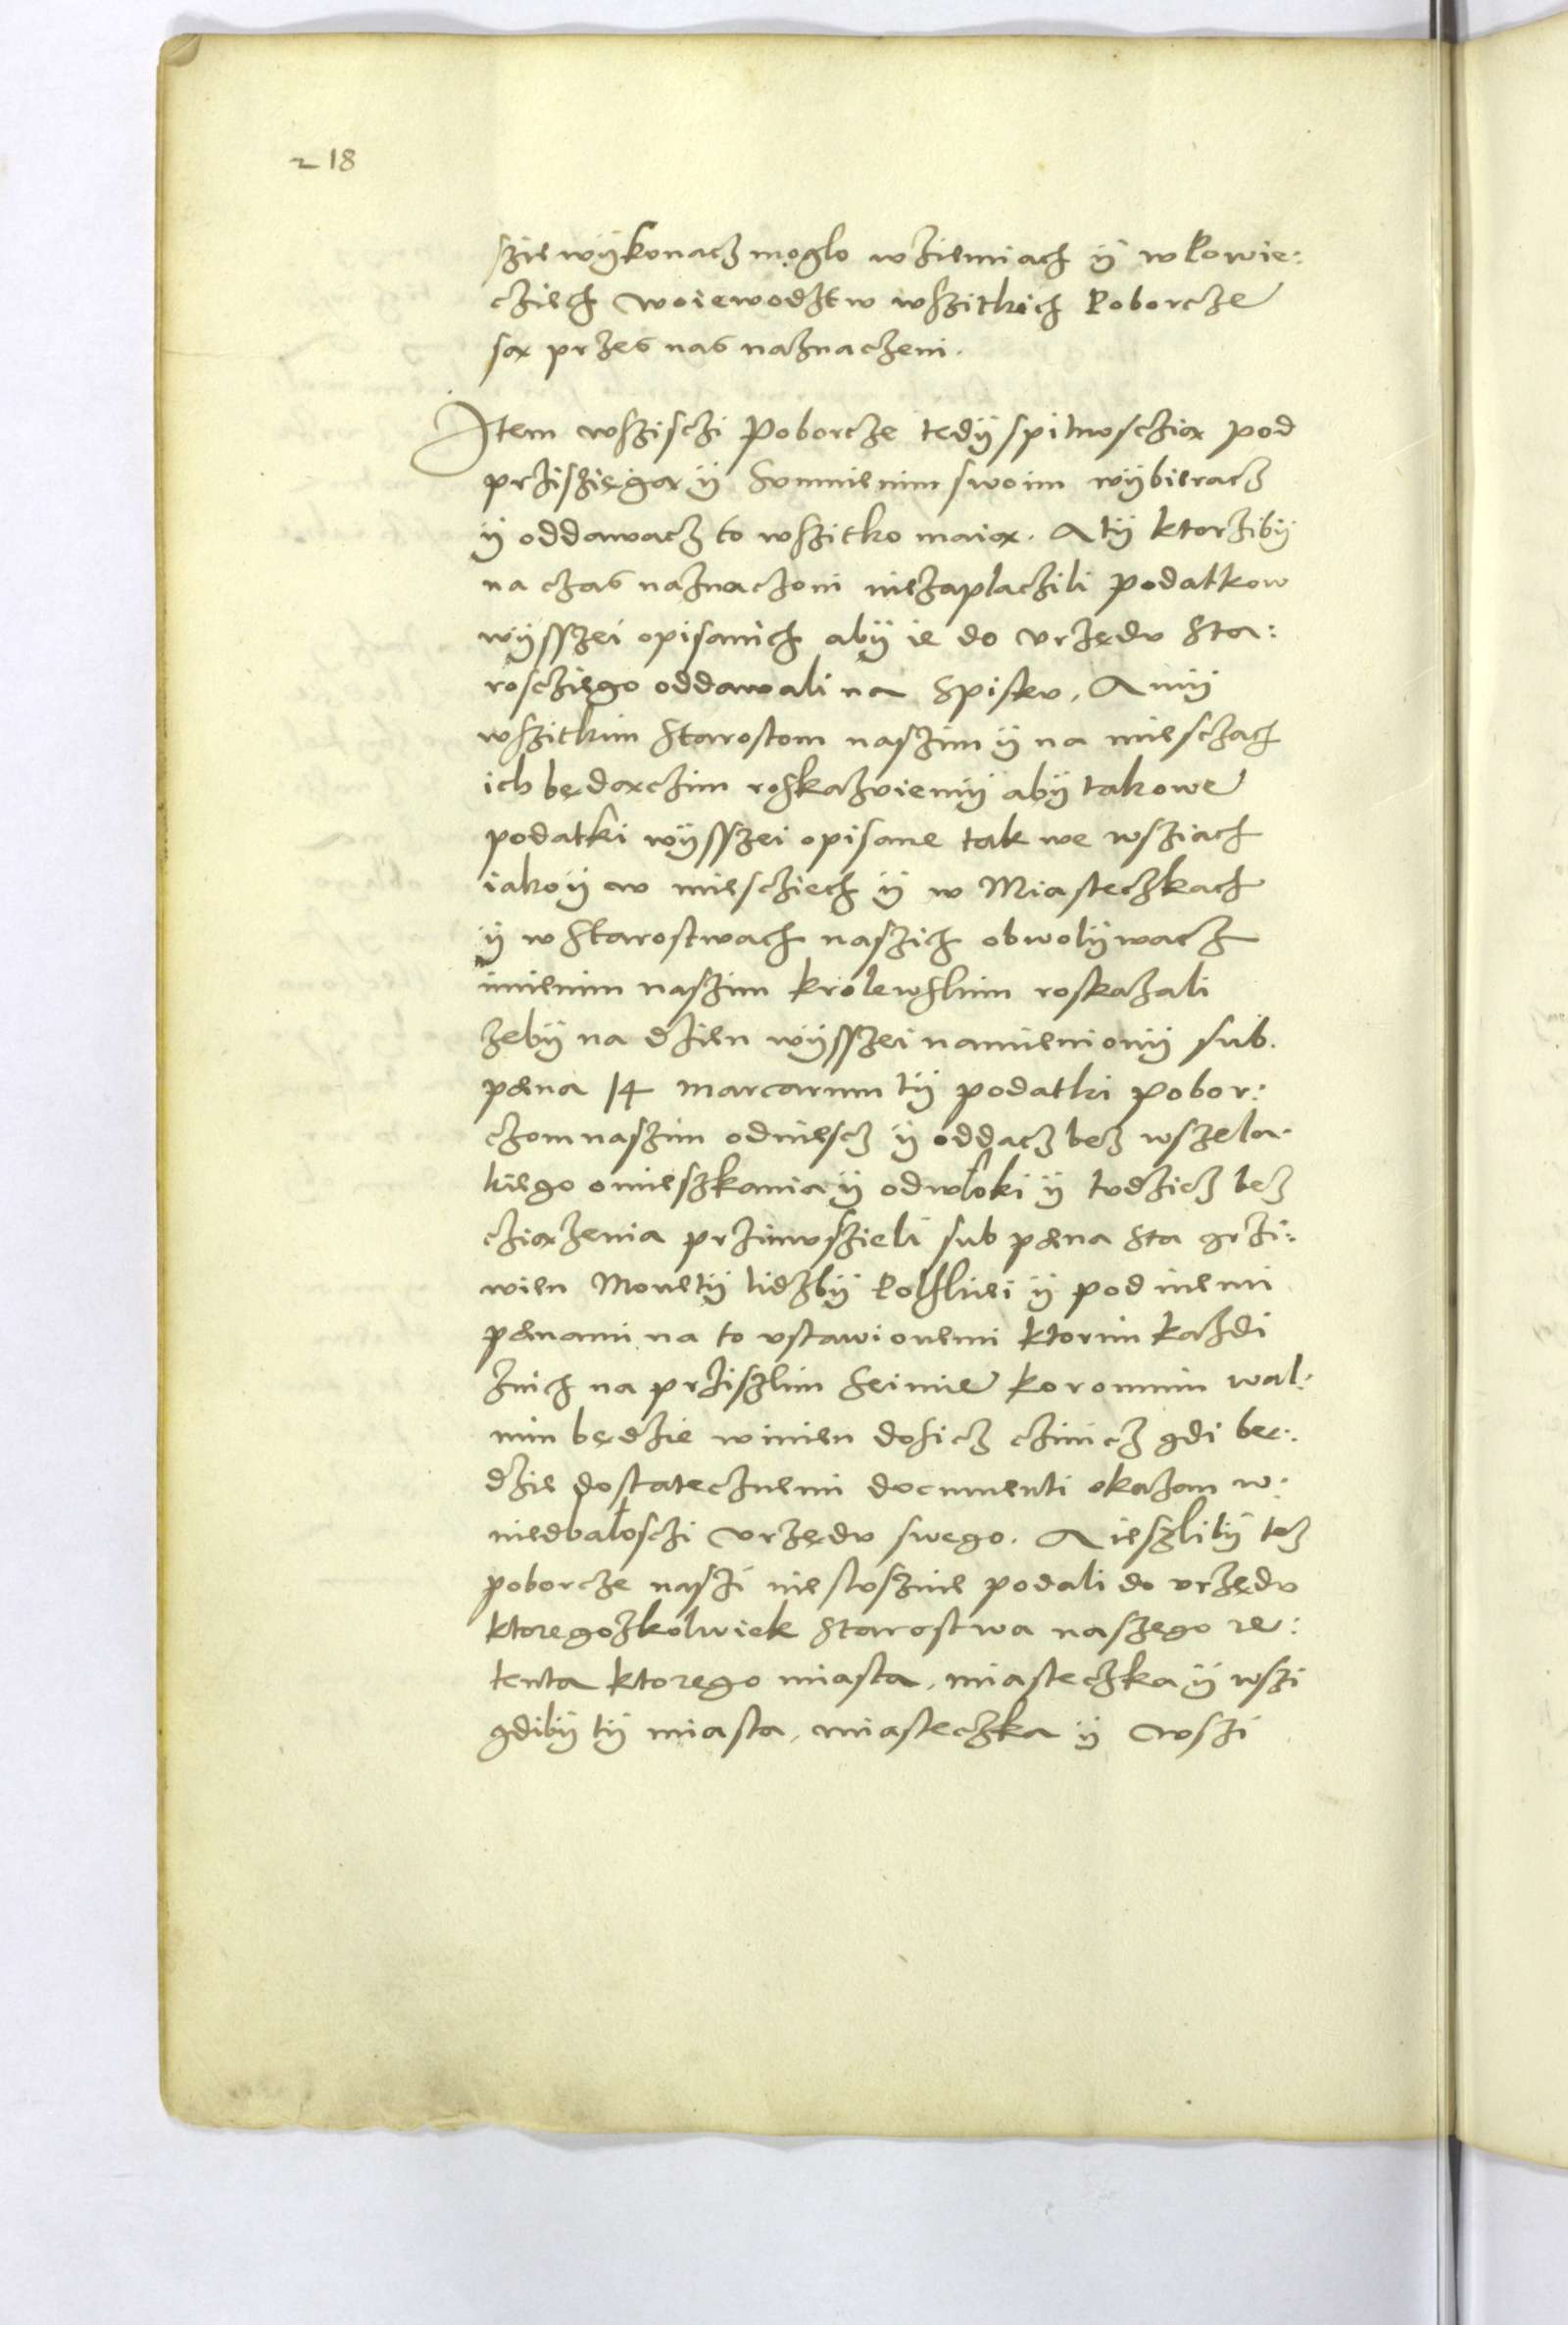 218
szie wÿkonacz moglo w ziemiach ÿ w Powie:
cziech woiewodztw wszitkich Poborcze
są przes nas naznaczeni.
Item wszischi Poborcze tedÿ s pilnosczią pod
przisziegą ÿ Sumnienim swoim wÿbieracz
ÿ oddawacz to wszitko maią. A tÿ ktorzibÿ
na czas naznaczoni niezaplaczili podatkow
wÿsszei opisanich abÿ ie do urzędu Sta:
rosczięgo oddawali na Spisku. A mÿ
wszitkim Starostom naszim ÿ na miesczach
ich będączim roskazuiemÿ abÿ takowe
podatki wÿsszei opisane tak we wsziach
iako ÿ w miesciech ÿ w Miasteczkach
ÿ w Starostwach naszich obwolÿwacz
imienim naszim krolewskim roskazali
zebÿ na dzien wÿsszei namienionÿ sub.
pæna 14 marcarum tÿ podatki pobor:
czom naszim odniescz ÿ oddacz bez wszela.
kiego omieszkania ÿ odwłoki ÿ tudziez bez
cziązenia przimuszieli sub pæna Sta grzi:
wien Monetÿ lidzbÿ Polskiei ÿ pod inemi
pænami na to ustawionemi ktorim kazdi
znich na prziszlim Seimie koronnim wal:
nim będzie winien dosicz czinicz gdi bę:
dzie dostatecznemi documenti okazan w:
niedbałosczi urzędu swego. A ieszlibÿ tez
poborcze naszi niesłusznie podali do urzędu
ktoregozkolwiek Starostwa naszego re:
tenta ktorego miasta, miasteczka ÿ wszi
gdibÿ tÿ miasta, miasteczka ÿ wszi